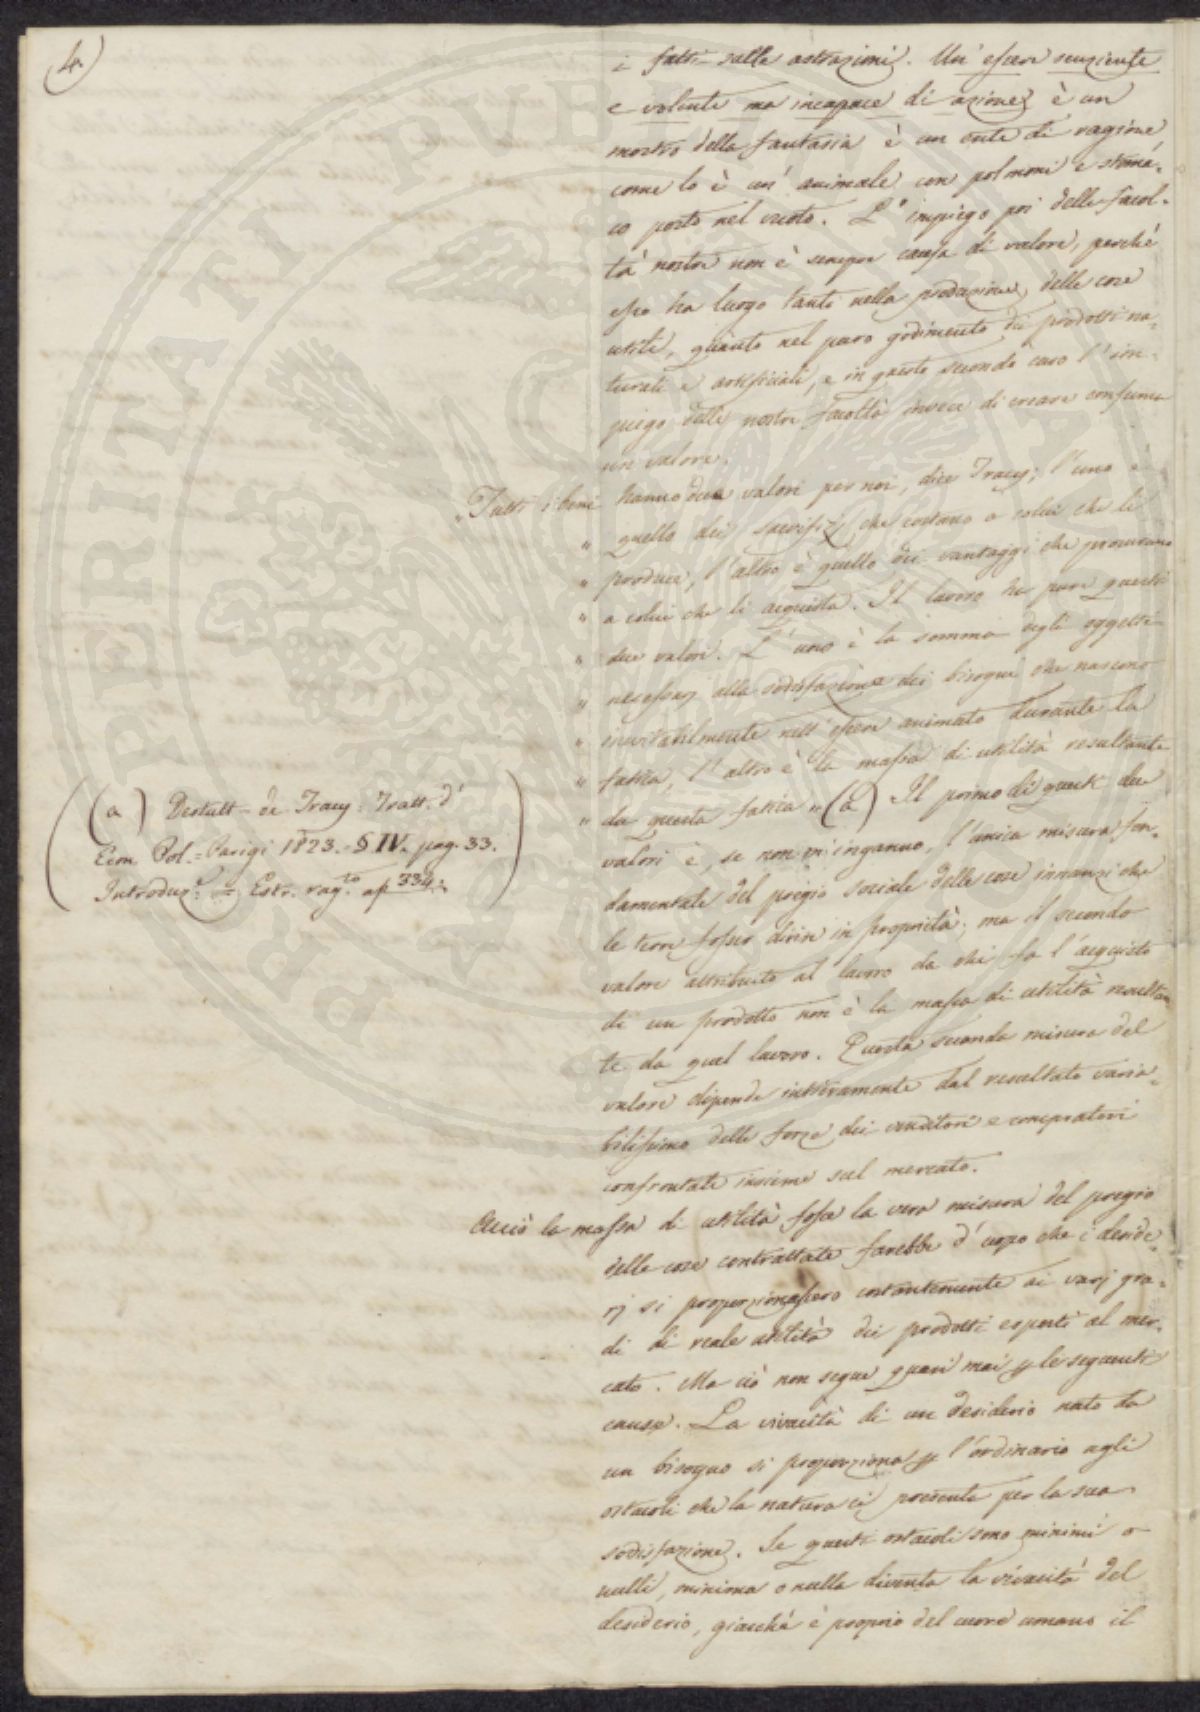 4.
i fatti dalle astrazioni. Un' essere senziente
e volente ma incapace di azione è un
mostro della fantasia è un ente di ragione
come lo è un' animale con polmoni e stoma-
co posto nel vuoto. L' impiego poi delle facol-
tà nostre non è sempre causa di valore, perché
esso ha luogo tanto nella produzione delle cose
utili, quanto nel puro godimento dei prodotti na-
turali e artificiali, e in questo secondo caso l' im-
piego delle nostre facoltà invece di creare consuma
un valore.
„ Tutti i beni hanno due valori per noi, dice Tracy; l' uno è
„ quello dei sacrifizj che costano a colui che li
„ produce, l' altro è quello dei vantaggi che procurano
„ a colui che li acquista. Il lavoro ha pure questi
„ due valori. L' uno è la somma degli oggetti
„ necessarj alla sodisfazione dei bisogni che nascono
„ inevitabilmente nell' essere animato durante la
„ fatica, l' altro è la massa di utilità resultante
„ da questa fatica „ (a) Il primo di questi due
valori è, se non m' inganno, l' unica misura fon-
damentale del pregio sociale delle cose innanzi che
le terre fosser divise in proprietà; ma il secondo
valore attribuito al lavoro da chi fa l' acquisto
di un prodotto non è la massa di utilità resultan
te da quel lavoro. Questa seconda misura del
valore dipende intieramente dal resultato varia-
bilissimo delle forze dei venditori e compratori
confrontate insieme sul mercato.
Acciò la massa di utilità fosse la vera misura del pregio
delle cose contrattate farebbe d' uopo che i deside-
rj si proporzionassero costantemente ai varj gra-
di di reale utilità dei prodotti esposti al mer-
cato. Ma ciò non segue quasi mai p le seguenti
cause. La vivacità di un desiderio nato da
un bisogno si proporziona p l' ordinario agli
ostacoli che la natura ci presenta per la sua
sodisfazione. Se questi ostacoli sono minimi o
nulli, minima o nulla diventa la vivacità del
desiderio, giacché è proprio del cuore umano il
(a) Destutt de Tracy. Tratt. d'
Econ. Pol. = Parigi 1823. = § IV. pag. 33.
Introduz.e = Estr. rag.to ap 334.
PROSPERITATI PUBLICAE